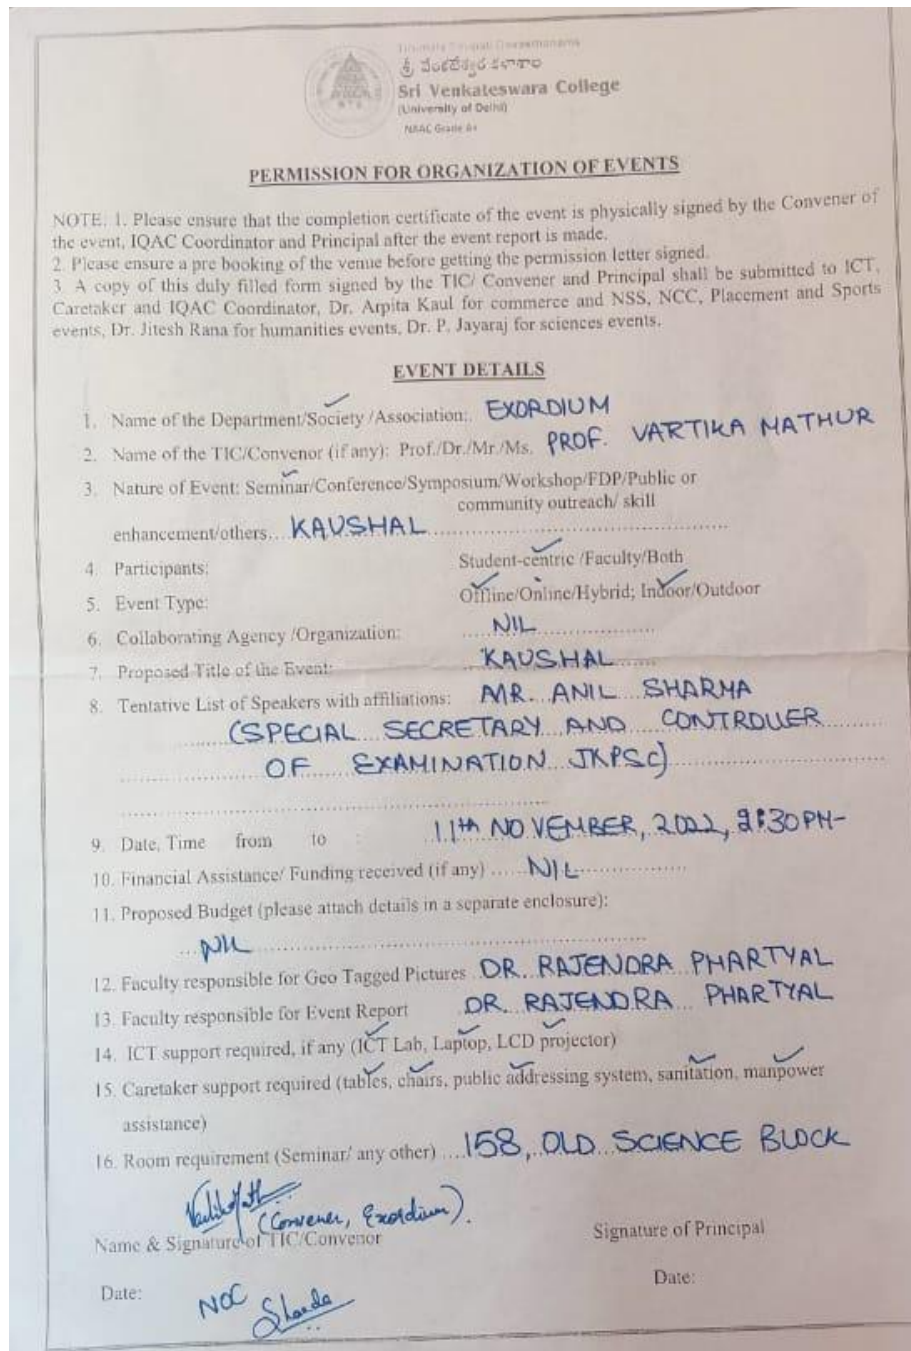 Tirumala Tirupati Devasthanams
శ్రీ వేంకటేశ్వర కళాశాల
Sri Venkateswara College
(University of Delhi)
NAAC Grade A+
PERMISSION FOR ORGANIZATION OF EVENTS
NOTE: 1. Please ensure that the completion certificate of the event is physically signed by the Convener of
the event, IQAC Coordinator and Principal after the event report is made.
2. Please ensure a pre booking of the venue before getting the permission letter signed.
3. A copy of this duly filled form signed by the TIC/ Convener and Principal shall be submitted to ICT,
Caretaker and IQAC Coordinator, Dr. Arpita Kaul for commerce and NSS, NCC, Placement and Sports
events, Dr. Jitesh Rana for humanities events, Dr. P. Jayaraj for sciences events.
EVENT DETAILS
1. Name of the Department/Society /Association: EXORDIUM
2. Name of the TIC/Convenor (if any): Prof./Dr./Mr./Ms. PROF. VARTIKA MATHUR
3. Nature of Event: Seminar/Conference/Symposium/Workshop/FDP/Public or
community outreach/ skill
enhancement/others... KAUSHAL
4. Participants: Student-centric /Faculty/Both
5. Event Type: Offline/Online/Hybrid; Indoor/Outdoor
6. Collaborating Agency /Organization: NIL
7. Proposed Title of the Event: KAUSHAL
8. Tentative List of Speakers with affiliations: MR. ANIL SHARMA
(SPECIAL SECRETARY AND CONTROLLER
OF EXAMINATION JKPSC)
9. Date, Time from to : 11th NOVEMBER, 2022, :30PM-
10. Financial Assistance/ Funding received (if any) ..... NIL
11. Proposed Budget (please attach details in a separate enclosure):
NIL
12. Faculty responsible for Geo Tagged Pictures DR. RAJENDRA PHARTYAL
13. Faculty responsible for Event Report DR. RAJENDRA PHARTYAL
14. ICT support required, if any (ICT Lab, Laptop, LCD projector)
15. Caretaker support required (tables, chairs, public addressing system, sanitation, manpower
assistance)
16. Room requirement (Seminar/ any other) .... 158, OLD SCIENCE BLOCK
(Convener, Exordium).
Name & Signature of TIC/Convenor
Signature of Principal
Date:
Date:
NOC